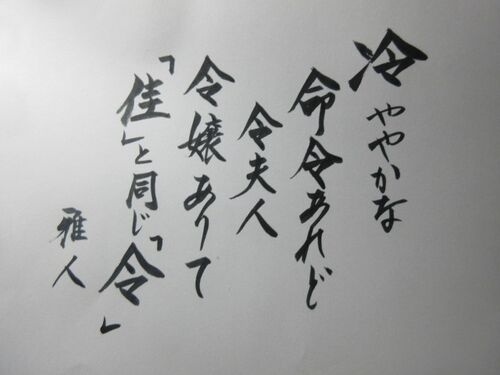 冷ややかな
命令あれど
令夫人
令嬢ありて
「佳」と同じ「令」
雅人